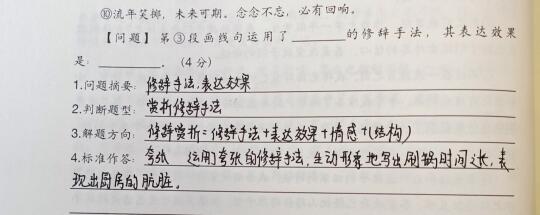 ⑩流年笑掷，未来可期。念念不忘，必有回响。
【问题】第③段画线句运用了________的修辞手法，其表达效果
是：________。（4分）
1.问题摘要：修辞手法，表达效果
2.判断题型：赏析修辞手法
3.解题方向：修辞赏析=修辞手法+表达效果+情感+(结构)
4.标准作答：夸张 运用夸张的修辞手法，生动形象地写出刷锅时间之长，表
现出厨房的肮脏。